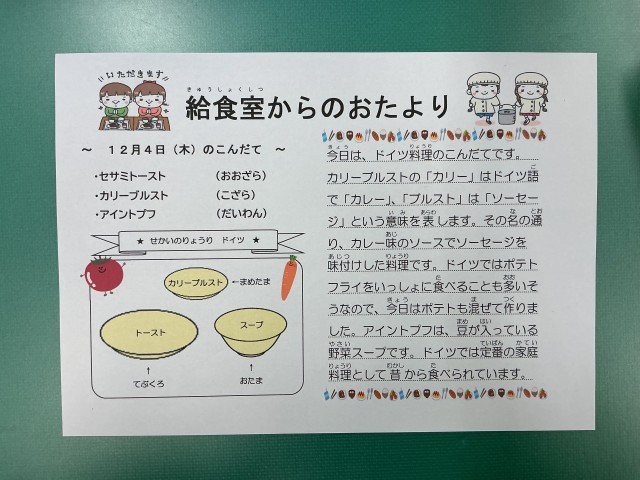 いただきます
きゅうしょくしつ
給食室からのおたより
～ １２月４日（木）のこんだて ～
・セサミトースト （おおざら）
・カリーブルスト （こざら）
・アイントプフ （だいわん）
★ せかいのりょうり ドイツ ★
カリーブルスト ←まめたま
トースト
スープ
↑ ↑
てぶくろ おたま
今日は、ドイツ料理のこんだてです。
カリーブルストの「カリー」はドイツ語
で「カレー」、「ブルスト」は「ソーセー
ジ」という意味を表します。その名の通
り、カレー味のソースでソーセージを
味付けした料理です。ドイツではポテト
フライをいっしょに食べることも多いそ
うなので、今日はポテトも混ぜて作りま
した。アイントプフは、豆が入っている
野菜スープです。ドイツでは定番の家庭
料理として昔から食べられています。